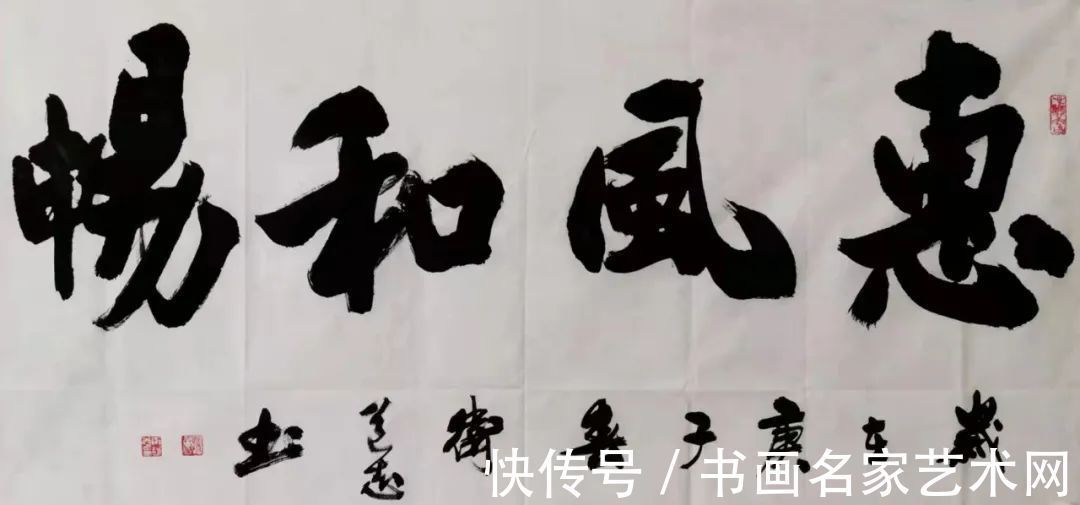 惠風和暢
歲在庚子春衛道志书
快传号/书画名家艺术网